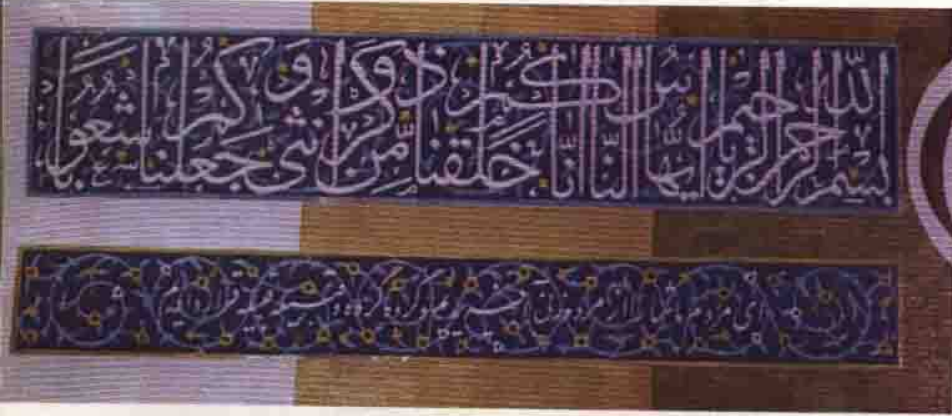 بسم الله الرحمن الرحیم یا أیها الناس إنا خلقناکم من ذکر و أنثی و جعلناکم شعوبا
ای مردم ما شما را از مرد و زن آفریدیم و گروه گروه و قرار دادیم